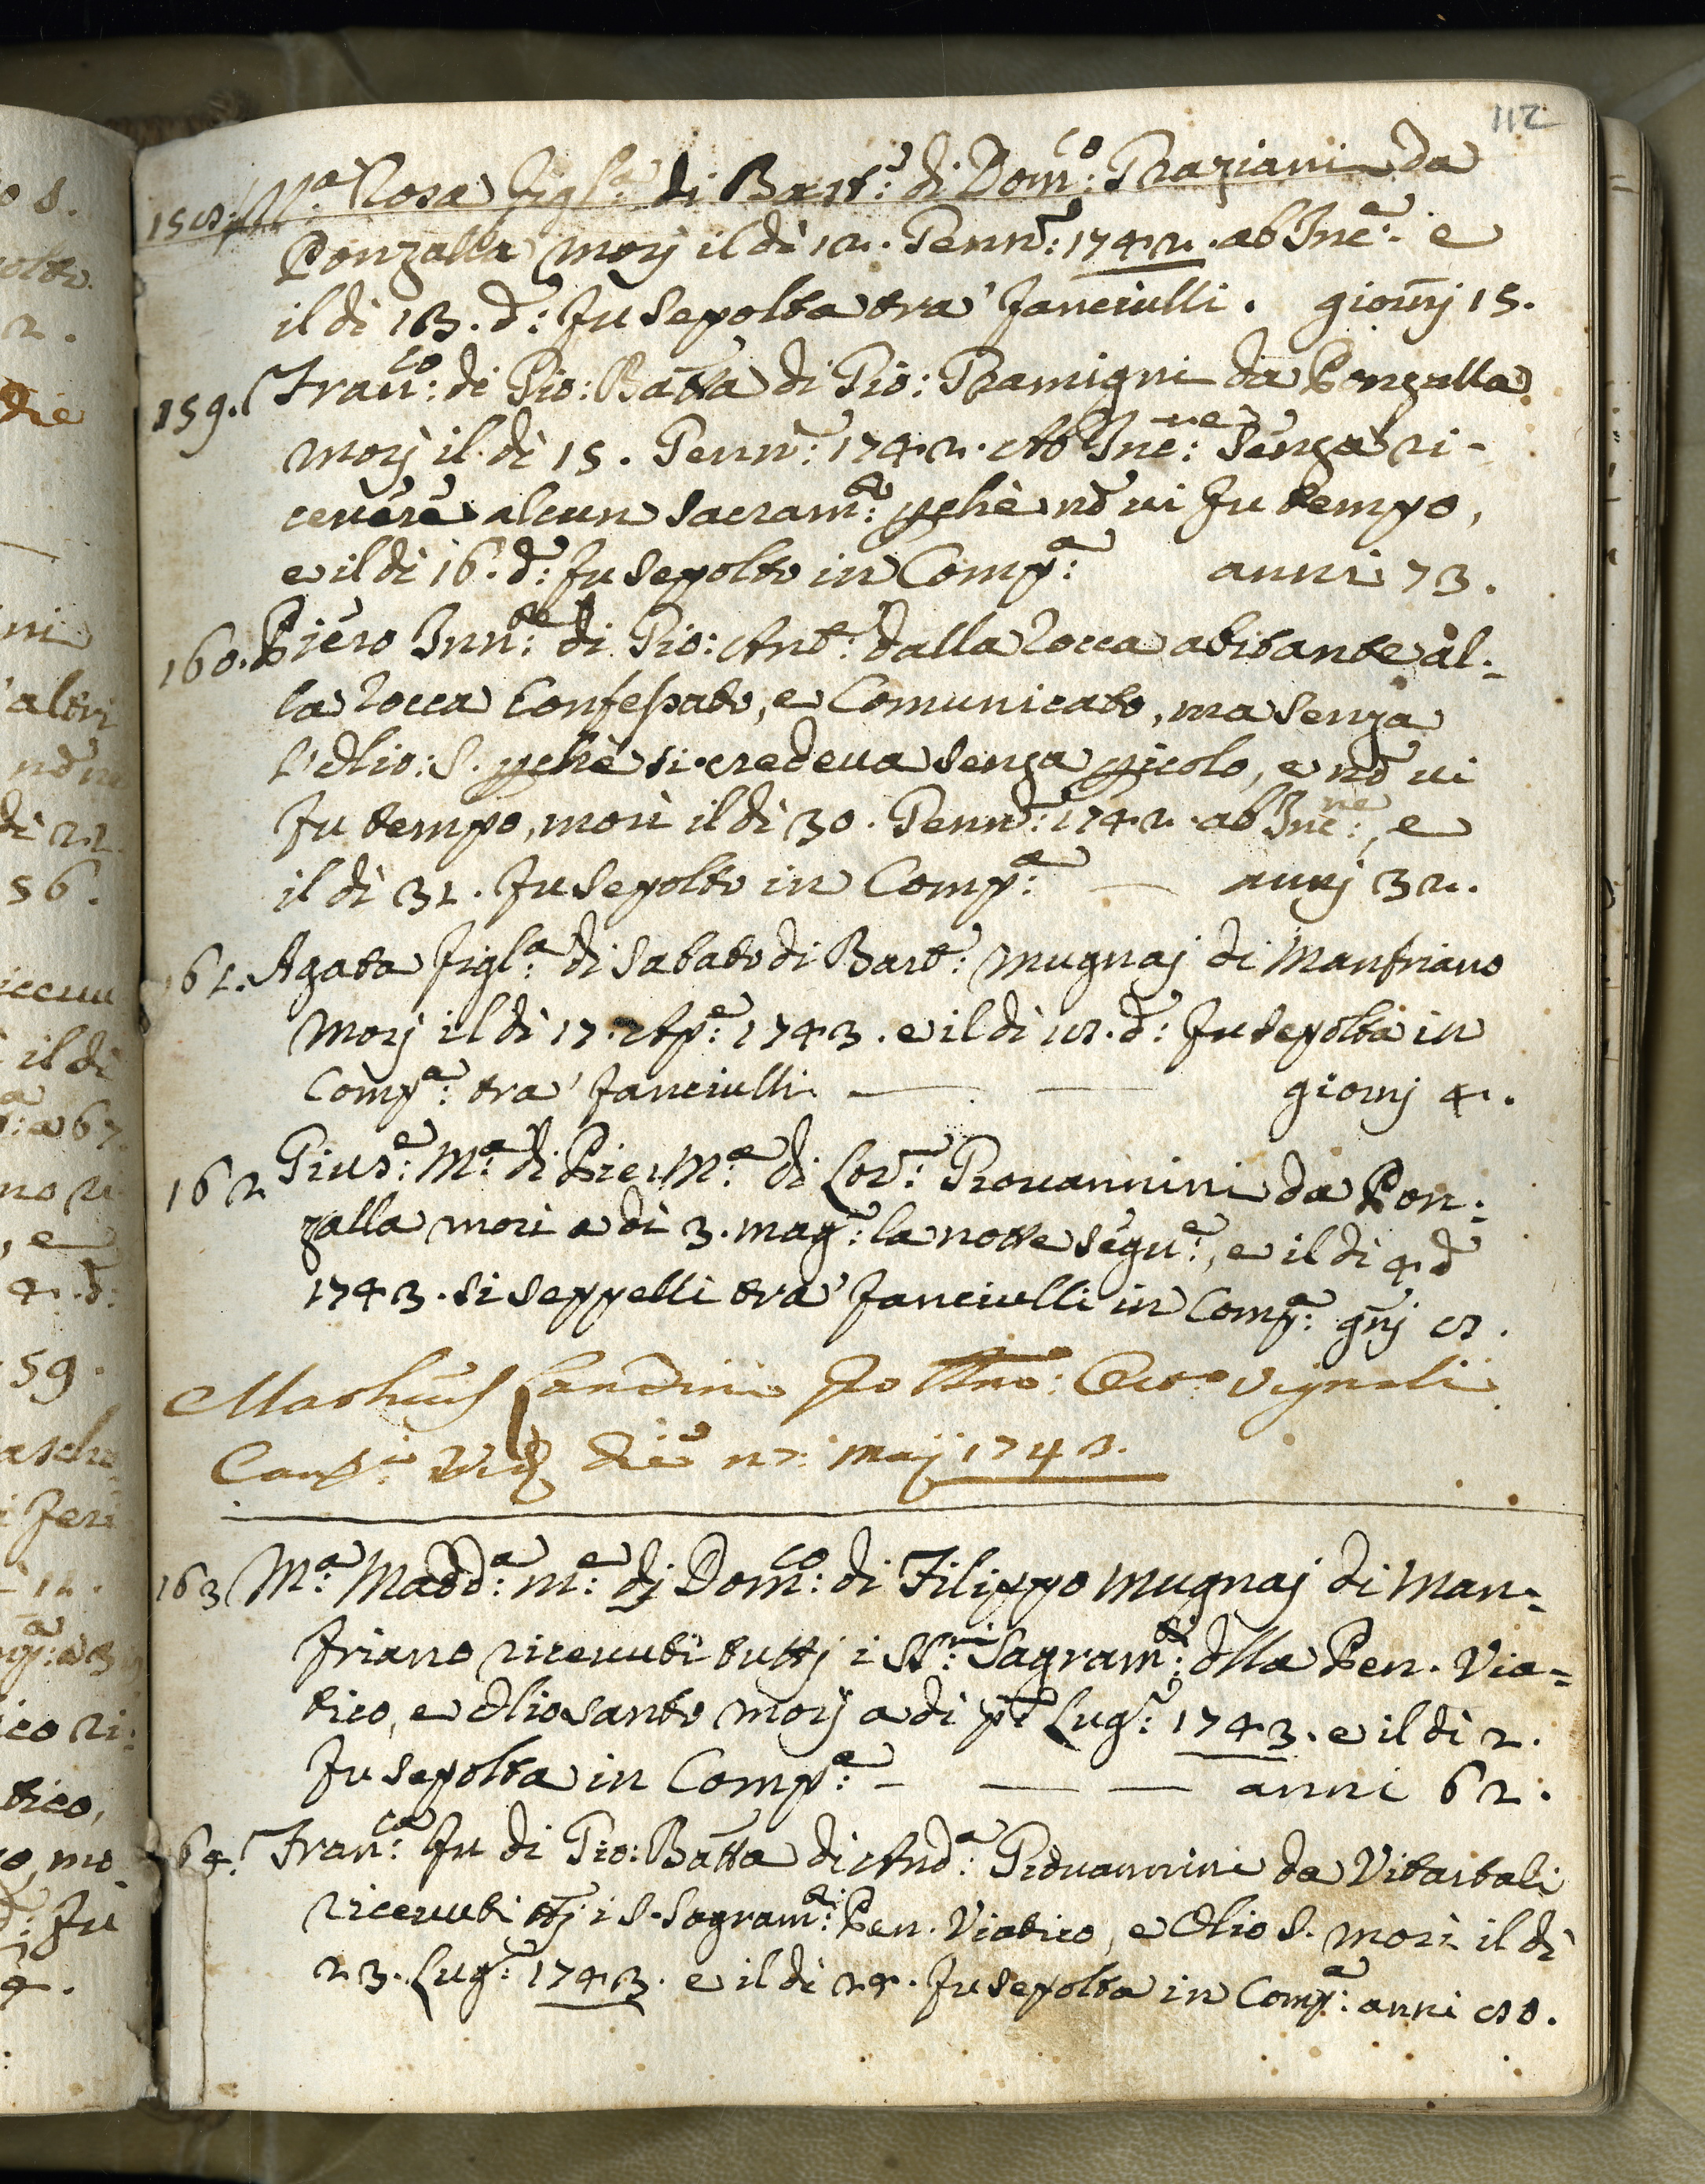 112
158. M.ª Rosa figl.ª di Bart.º di Dom.co Graziani da
Ponzalla morj il dì 12. Genn.º: 1742. ab Inc.e e
il dì 13. d.º: fu sepolta tra' fanciulli. giornj 15.
159. Fran.co: di Gio: Batta di Gio: Gramigni da Ponzalla
morj il dì 15. Genn.º: 1742. Ab Inc.ne: senza ri-
cevere alcun sacram.to: pchè nō vi fu tempo,
e il dì 16. d.º: fu sepolto in Comp.ª: anni 73.
160. Piero Inn.te: di Gio: Ant.º: dalla Rocca abitante al-
la Rocca Confessato, e Comunicato, ma senza
l'Olio: S. pchè si credeva senza picolo, e nō vi
fu tempo, morì il dì 30. Genn.º: 1742. ab Inc.ne:, e
il dì 31. fu sepolto in Comp.ª: — annj 32.
161. Agata figl.ª: di Sabato di Bart.º: Mugnaj di Manfriano
morj il dì 17. Ap.e: 1743. e il dì 18. d.º: fu sepolta in
Comp.ª: tra' fanciulli — — giornj 4.
162 Gius.e: M.ª: di Pier M.ª: di Lor.º: Giovannini da Pon-
zalla morì a dì 3. mag.º: la notte segu.e:, e il dì 4. d.º
1743. si seppellì tra' fanciulli in Comp.ª: gnj 8.
Landini Vignali
die 27: Maij 1743.
163 M.ª: Madd.ª: m.e: dj Dom.co: di Filippo Mugnaj di Man-
friano ricevuti tuttj i SS.mi: Sagram.ti: dlla Pen. Via-
tico, e Olio santo morj a dì p.º Lug.º: 1743. e il dì 2.
fu sepolta in Comp.ª: — — — anni 62.
164. Fran.ca: fu di Gio: Batta di And.ª: Giovannini da Vitartali
ricevuti ttj i S. Sagram.ti: Pen. Viatico, e Olio S. morì il dì
23. Lug.º: 1743. e il dì 24. fu sepolta in Comp.ª: anni 80.